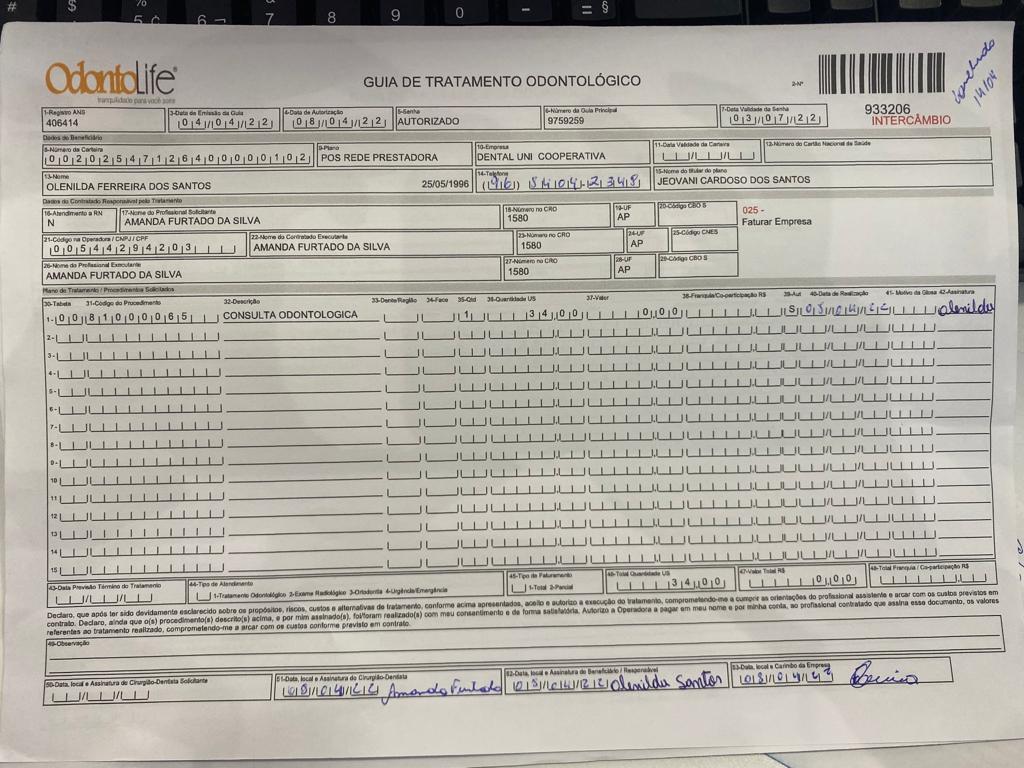 OdontoLife
tranquilidade para você sorrir
GUIA DE TRATAMENTO ODONTOLÓGICO
2-Nº
933206
INTERCÂMBIO
14/04
1-Registro ANS
406414
3-Data de Emissão da Guia
04/04/22
4-Data de Autorização
08/04/22
5-Senha
AUTORIZADO
6-Número da Guia Principal
9759259
7-Data Validade da Senha
03/07/22
Dados do Beneficiário
8-Número da Carteira
00202547126400000102
9-Plano
POS REDE PRESTADORA
10-Empresa
DENTAL UNI COOPERATIVA
11-Data Validade da Carteira
12-Número do Cartão Nacional de Saúde
13-Nome
OLENILDA FERREIRA DOS SANTOS 25/05/1996
14-Telefone
15-Nome do titular do plano
JEOVANI CARDOSO DOS SANTOS
Dados do Contratado Responsável pelo Tratamento
16-Atendimento a RN
N
17-Nome do Profissional Solicitante
AMANDA FURTADO DA SILVA
18-Número no CRO
1580
19-UF
AP
20-Código CBO S
025 -
Faturar Empresa
21-Código na Operadora / CNPJ / CPF
00544294203
22-Nome do Contratado Executante
AMANDA FURTADO DA SILVA
23-Número no CRO
1580
24-UF
AP
25-Código CNES
26-Nome do Profissional Executante
AMANDA FURTADO DA SILVA
27-Número no CRO
1580
28-UF
AP
29-Código CBO S
Plano de Tratamento / Procedimentos Solicitados
30-Tabela 31-Código do Procedimento 32-Descrição 33-Dente/Região 34-Face 35-Qtd 36-Quantidade US 37-Valor 38-Franquia/Co-participação R$ 39-Aut 40-Data de Realização 41- Motivo da Glosa 42-Assinatura
1- 00 81000065 CONSULTA ODONTOLOGICA 1 34,00 0,00 S 08/04/22 Olenilda
2-
3-
4-
5-
6-
7-
8-
9-
10
11
12
13
14
15
43-Data Previsão Término do Tratamento
44-Tipo de Atendimento
1-Tratamento Odontológico 2-Exame Radiológico 3-Ortodontia 4-Urgência/Emergência
45-Tipo de Faturamento
1-Total 2-Parcial
46-Total Quantidade US
34,00
47-Valor Total R$
0,00
48-Total Franquia / Co-participação R$
Declaro, que após ter sido devidamente esclarecido sobre os propósitos, riscos, custos e alternativas de tratamento, conforme acima apresentados, aceito e autorizo a execução do tratamento, comprometendo-me a cumprir as orientações do profissional assistente e arcar com os custos previstos em
contrato. Declaro, ainda que o(s) procedimento(s) descrito(s) acima, e por mim assinado(s), foi/foram realizado(s) com meu consentimento e de forma satisfatória. Autorizo a Operadora a pagar em meu nome e por minha conta, ao profissional contratado que assina esse documento, os valores
referentes ao tratamento realizado, comprometendo-me a arcar com os custos conforme previsto em contrato.
49-Observação
50-Data, local e Assinatura do Cirurgião-Dentista Solicitante
51-Data, local e Assinatura do Cirurgião-Dentista
08/04/22 Amanda Furtado
52-Data, local e Assinatura do Beneficiário / Responsável
08/04/22 Olenilda Santos
53-Data, local e Carimbo da Empresa